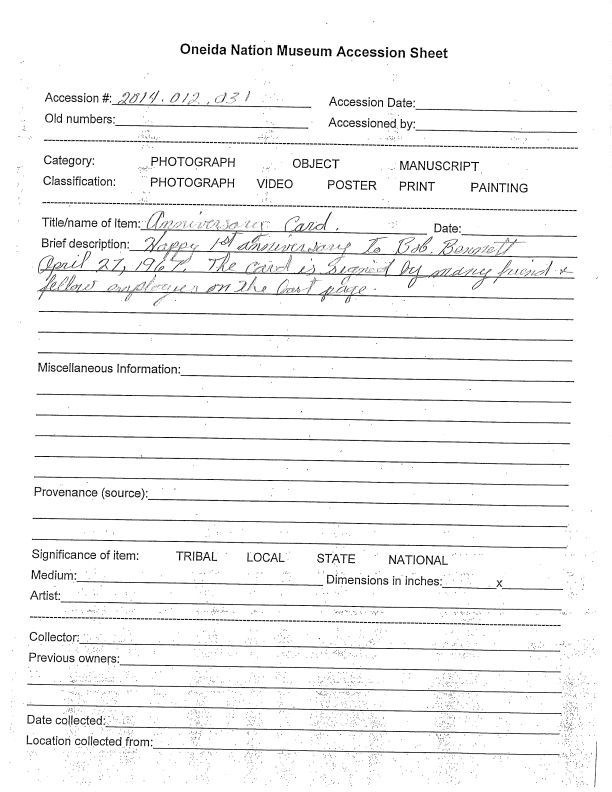 Oneida Nation Museum Accession Sheet
Accession #: 2014.012.031 Accession Date:
Old numbers: Accessioned by:
Category: PHOTOGRAPH OBJECT MANUSCRIPT
Classification: PHOTOGRAPH VIDEO POSTER PRINT PAINTING
Title/name of Item: Anniversary Card. Date:
Brief description: Happy 1st anniversary To Bob Bennett
April 27, 1967. The card is signed by many friend &
fellow employees on the last page.
Miscellaneous Information:
Provenance (source):
Significance of item: TRIBAL LOCAL STATE NATIONAL
Medium: Dimensions in inches: x
Artist:
Collector:
Previous owners:
Date collected:
Location collected from: